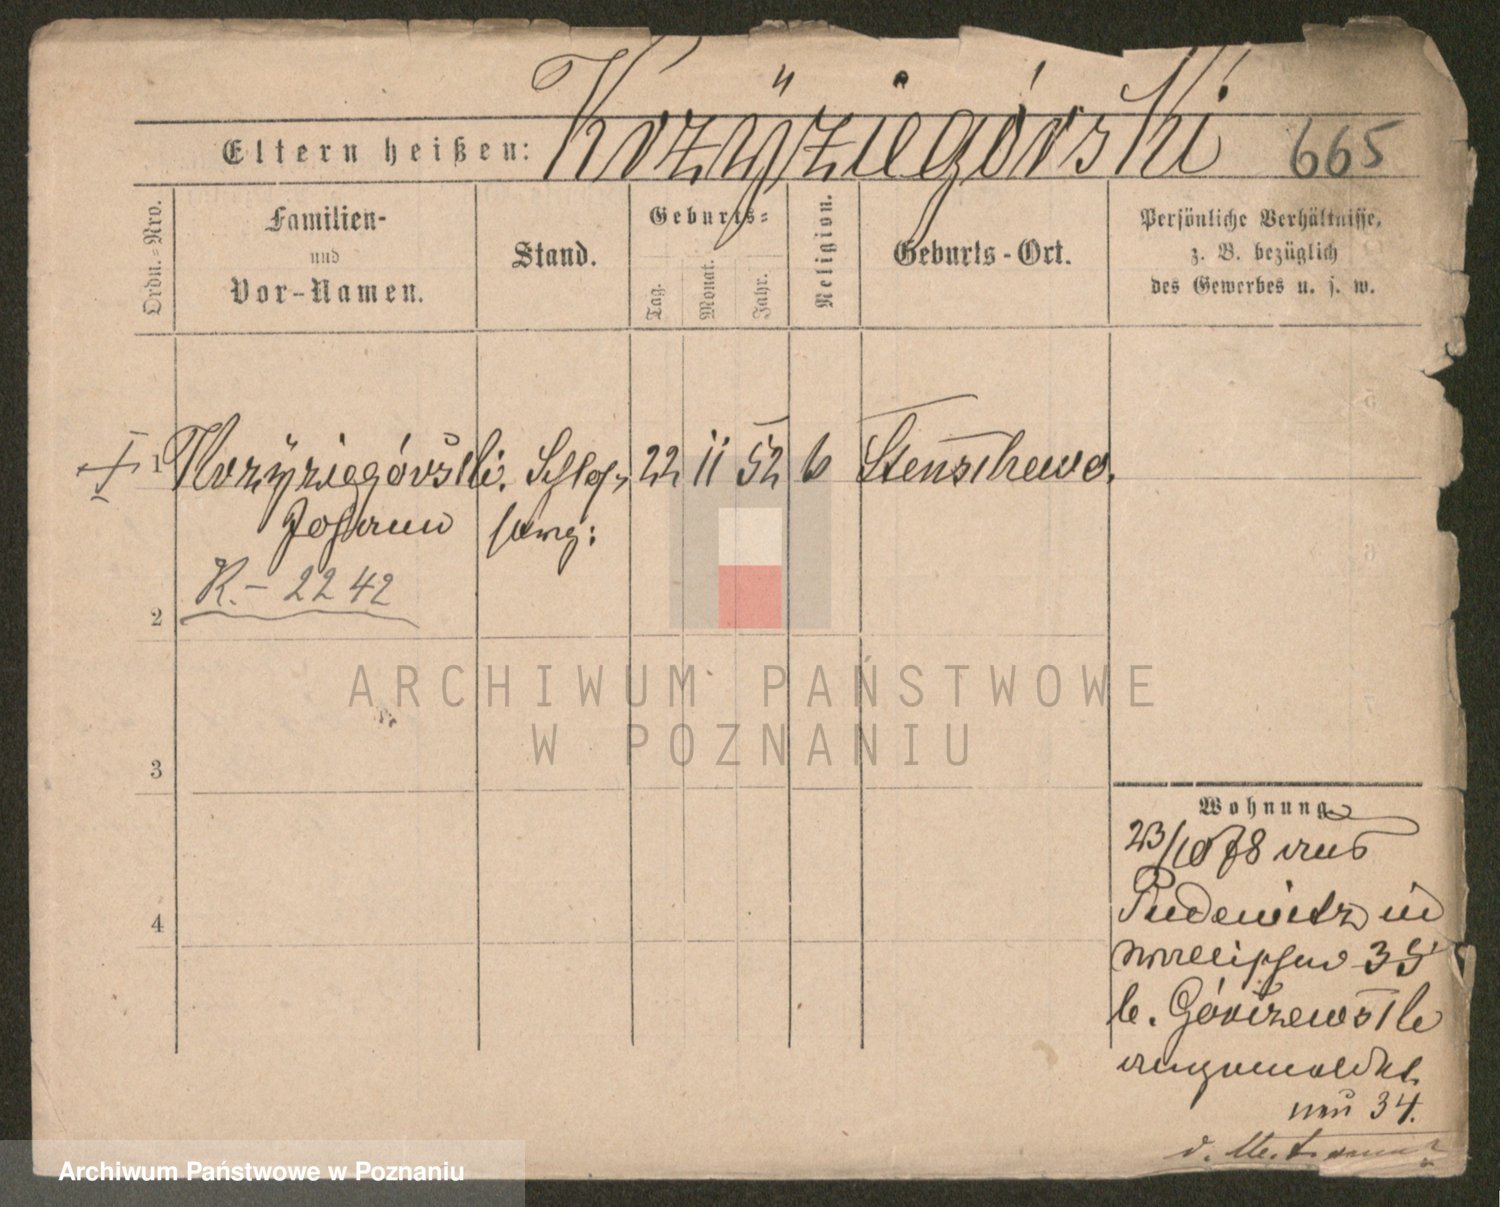 Eltern heißen: Kozÿziegórski 665
Ordn.-Nro.
Familien-
und
Vor-Namen.
Stand.
Geburts-
Tag.
Monat.
Jahr.
Religion.
Geburts-Ort.
Persönliche Verhältnisse,
z. B. bezüglich
des Gewerbes u. s. w.
1 Kozÿziegórski. Schlos- 22 11 52 k Stenschewo.
Johann
K.- 2242
2
3
4
Wohnung.
23/10 78 aus
Pudewitz in
Wallischei 35
b. Górczewski
angemeldet.
neu 34.
ARCHIWUM PAŃSTWOWE
W POZNANIU
Archiwum Państwowe w Poznaniu